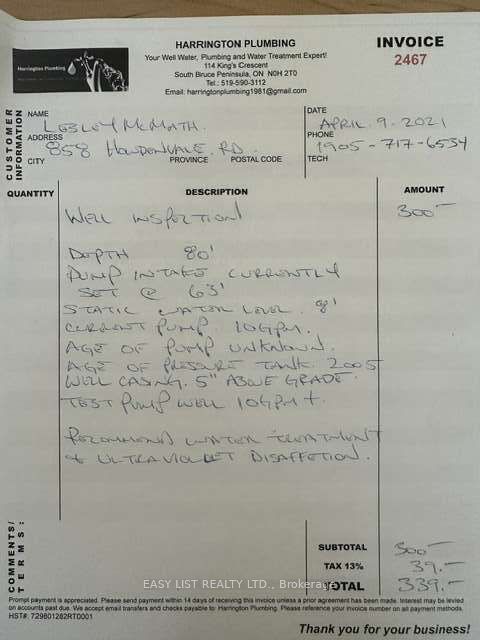 Harrington Plumbing
HARRINGTON PLUMBING
Your Well Water, Plumbing and Water Treatment Expert!
114 King's Crescent
South Bruce Peninsula, ON N0H 2T0
Tel.: 519-590-3112
Email: harringtonplumbing1981@gmail.com
INVOICE
2467
CUSTOMER INFORMATION
NAME LESLEY McMATH.
ADDRESS 858 HOWDENVALE RD.
CITY PROVINCE POSTAL CODE
DATE APRIL 9. 2021
PHONE 1905-717-6534
TECH
QUANTITY DESCRIPTION AMOUNT
WELL INSPECTION 300—
DEPTH 80'
PUMP INTAKE CURRENTLY
SET @ 63'
STATIC WATER LEVEL. 8'
CURRENT PUMP. 10GPM.
AGE OF PUMP UNKNOWN.
AGE OF PRESSURE TANK. 2005
WELL CASING. 5" ABOVE GRADE.
TEST PUMP WELL 10GPM +.
RECOMMEND WATER TREATMENT
& ULTRAVIOLET DISAFFETION.
COMMENTS/
TERMS:
SUBTOTAL 300—
TAX 13% 39.—
TOTAL 339.—
EASY LIST REALTY LTD., Brokerage
Prompt payment is appreciated. Please send payment within 14 days of receiving this invoice unless a prior agreement has been made. Interest may be levied
on accounts past due. We accept email transfers and checks payable to: Harrington Plumbing. Please reference your invoice number on all payment methods.
HST#: 729801282RT0001
Thank you for your business!